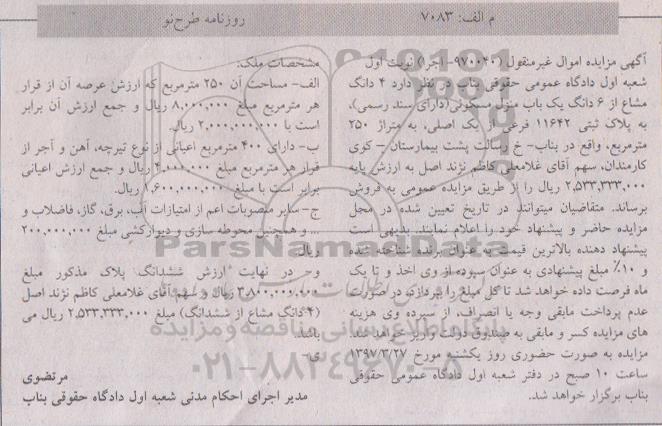 م الف: ۷۰۸۳
روزنامه طرح‌نو
آگهی مزایده اموال غیرمنقول (۹۷۰۰۴۰- اجرا) نوبت اول
شعبه اول دادگاه عمومی حقوقی بناب در نظر دارد ۴ دانگ
مشاع از ۶ دانگ یک باب منزل مسکونی(دارای سند رسمی)،
به پلاک ثبتی ۱۱۶۴۲ فرعی از یک اصلی، به متراژ ۲۵۰
مترمربع، واقع در بناب- خ رسالت پشت بیمارستان - کوی
کارمندان، سهم آقای غلامعلی کاظم نژند اصل به ارزش پایه
۲,۵۳۳,۳۳۳,۰۰۰ ریال را از طریق مزایده عمومی به فروش
برساند. متقاضیان میتوانند در تاریخ تعیین شده در محل
مزایده حاضر و پیشنهاد خود را اعلام نمایند. بدیهی است
پیشنهاد دهنده بالاترین قیمت به عنوان برنده شناخته شده
و ۱۰٪ مبلغ پیشنهادی به عنوان سپرده از وی اخذ و تا یک
ماه فرصت داده خواهد شد تا کل مبلغ را بپردازد. در صورت
عدم پرداخت مابقی وجه یا انصراف، از سپرده وی هزینه
های مزایده کسر و مابقی به صندوق دولت واریز خواهد شد.
مزایده به صورت حضوری روز یکشنبه مورخ ۱۳۹۷/۳/۲۷
ساعت ۱۰ صبح در دفتر شعبه اول دادگاه عمومی حقوقی
بناب برگزار خواهد شد.
مشخصات ملک:
الف- مساحت آن ۲۵۰ مترمربع که ارزش عرصه آن از قرار
هر مترمربع مبلغ ۸,۰۰۰,۰۰۰ ریال و جمع ارزش آن برابر
است با ۲,۰۰۰,۰۰۰,۰۰۰ ریال.
ب- دارای ۴۰۰ مترمربع اعیانی از نوع تیرچه، آهن و آجر از
قرار هر مترمربع مبلغ ۴,۰۰۰,۰۰۰ ریال و جمع ارزش اعیانی
برابر است با مبلغ ۱,۶۰۰,۰۰۰,۰۰۰ ریال.
ج- سایر منصوبات اعم از امتیازات آب، برق، گاز، فاضلاب و
... و همچنین محوطه سازی و دیوارکشی مبلغ ۲۰۰,۰۰۰,۰۰۰
ریال
و در نهایت ارزش ششدانگ پلاک مذکور مبلغ
۳,۸۰۰,۰۰۰,۰۰۰ ریال و سهم آقای غلامعلی کاظم نژند اصل
(۴ دانگ مشاع از ششدانگ) مبلغ ۲,۵۳۳,۳۳۳,۰۰۰ ریال می
باشد.
ی-
مرتضوی
مدیر اجرای احکام مدنی شعبه اول دادگاه حقوقی بناب
ParsNamadData
پایگاه اطلاع رسانی مناقصه و مزایده
۰۲۱-۸۸۳۴۹۶۷۰-۵